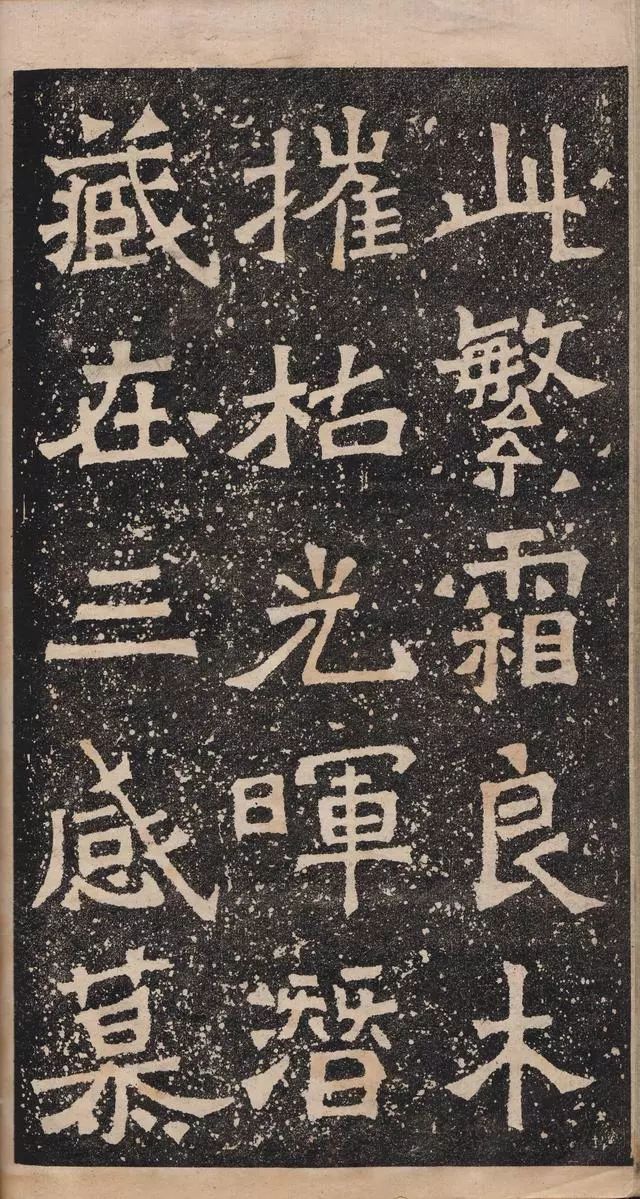 此繁霜良木
摧枯光暉潛
藏在三感慕